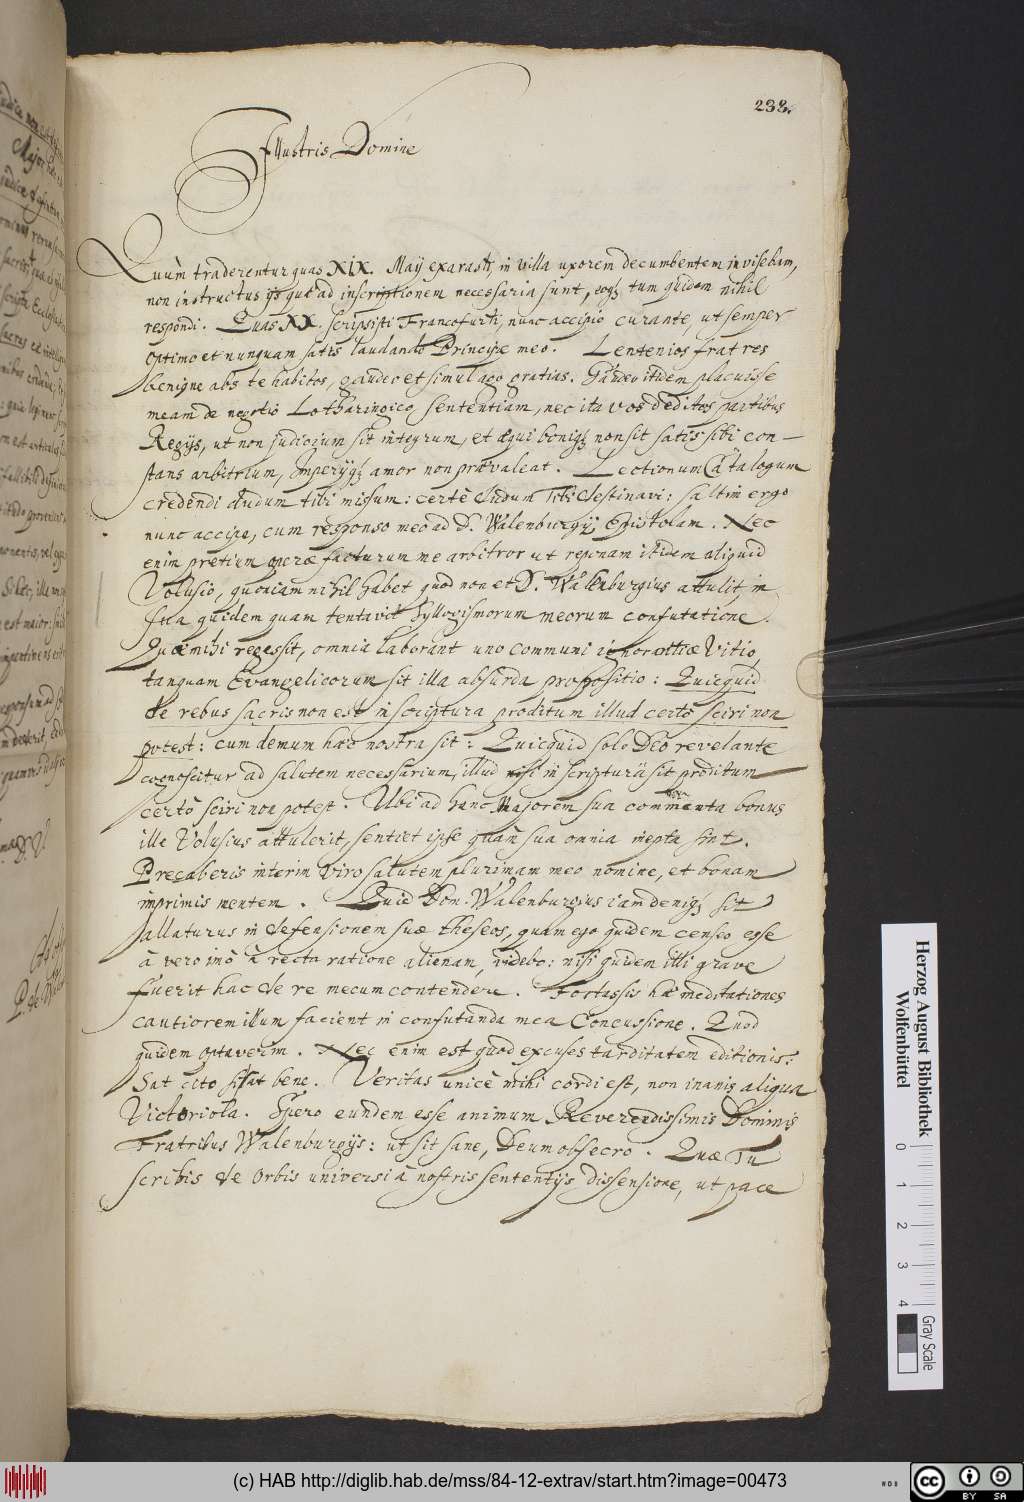 238.
Illustris Domine
Quùm traderentur quas XIX. Maij exarasti, in villa uxorem decumbentem invisebam,
non instructus ijs quæ ad inscriptionem necessaria sunt, eoq; tum quidem nihil
respondi. Quas XX. scripsisti Francofurti, nunc accipio curante, ut semper
optimo et nunquam satis laudando Principe meo. Lentenios fratres
benigne abs te habitos, gaudeo et simul ago gratias. Gaudeo itidem placuisse
meam de negotio Lotharingico sententiam, nec ita vos deditos partibus
Regijs, ut non judicium sit integrum, et æqui boniq; non sit satis sibi con-
stans arbitrium, Imperijq; amor non prævaleat. Lectionum Catalogum
credendi dudum tibi missum: certè dudum Tibi destinavi: saltim ergo
nunc accipe, cum responso meo ad D. Walenburgij Epistolam. Nec
enim pretium operæ facturum me arbitror ut reponam itidem aliquid
Volusio, quoniam nihil habet quod non et D. Walenburgius attulit, in
sua quidem quam tentavit Syllogismorum meorum confutatione.
Quæ mihi regessit, omnia laborant uno communi ignorantiæ Vitio,
tanquam Evangelicorum sit illa absurda propositio: Quicquid
de rebus sacris non est in scriptura proditum illud certò sciri non
potest: cum demum hæc nostra sit: Quicquid solo Deo revelante
cognoscitur ad salutem necessarium, illud nisi in scripturâ sit proditum
certò sciri non potest. Ubi ad hanc Majorem sua commenta bonus
ille Volusius attulerit, sentiet ipse quàm sua omnia inepta sint.
Precaberis interim Viro salutem plurimam meo nomine, et bonam
inprimis mentem. Quid Don. Walenburgius iam deniq; sit
allaturus in defensionem suæ theseos, quam ego quidem censeo esse
à vero imò à recta ratione alienam, videbo: nisi quidem illi grave
fuerit hac de re mecum contendere. Fortassis hæ meditationes
cautiorem illum facient in confutanda mea Concussione. Quod
quidem optaverim. Nec enim est quod excuses tarditatem editionis:
Sat cito, si sat bene. Veritas unicè mihi cordi est, non inanis aliqua
Victoriola. Spero eundem esse animum Reverendissimis Dominis
Fratribus Walenburgijs: ut sit sane, Deum obsecro. Quæ Tu
scribis de Orbis universi à nostris sententijs dissensione, ut pace
Herzog August Bibliothek
Wolfenbüttel
0 1 2 3 4
Gray Scale
(c) HAB http://diglib.hab.de/mss/84-12-extrav/start.htm?image=00473
cc BY SA